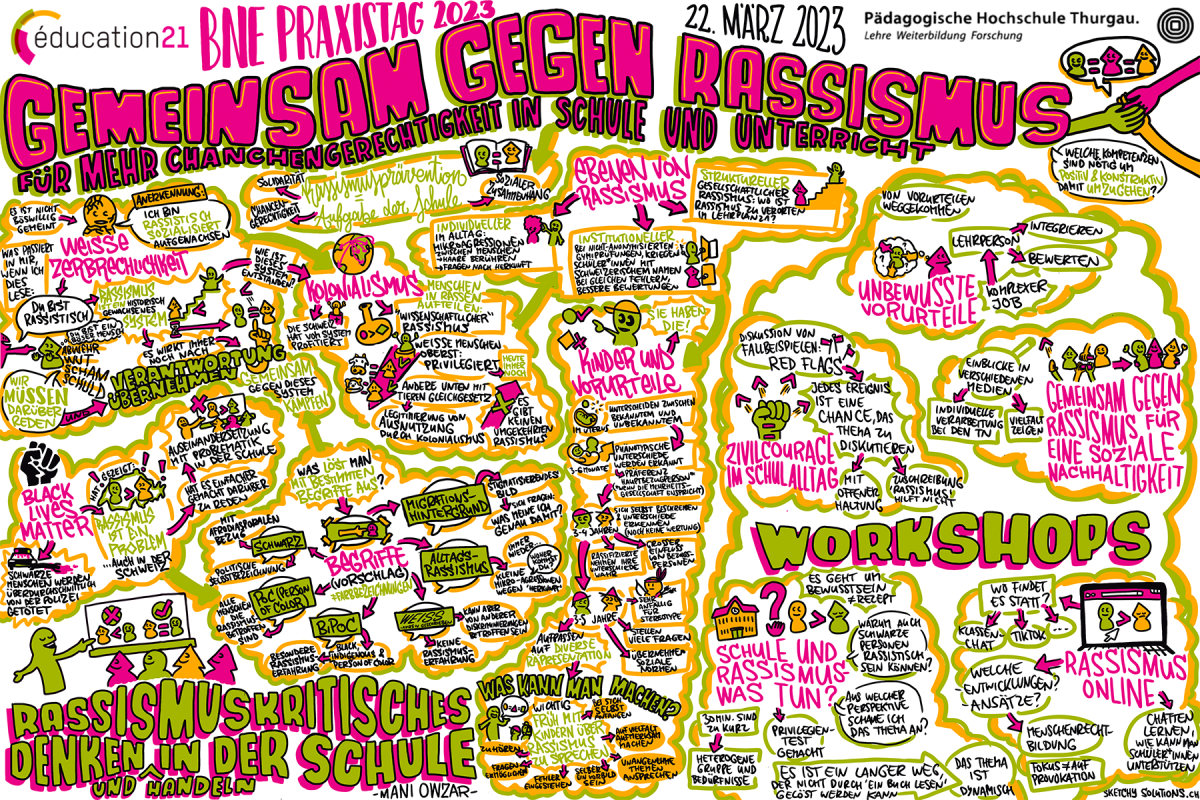 éducation21
BNE PRAXISTAG 2023
22. MÄRZ 2023
Pädagogische Hochschule Thurgau.
Lehre Weiterbildung Forschung
GEMEINSAM GEGEN RASSISMUS
FÜR MEHR CHANCHENGERECHTIGKEIT IN SCHULE UND UNTERRICHT
WELCHE KOMPETENZEN
SIND NÖTIG UM
POSITIV & KONSTRUKTIV
DAMIT UMZUGEHEN?
SOLIDARITÄT
CHANCEN-
GERECHTIGKEIT
Rassismusprävention
Aufgabe der Schule
SOZIALER
ZUSAMMENHANG
ES IST NICHT
BÖSWILLIG
GEMEINT
ANERKENNUNG:
ICH BIN
RASSISTISCH
SOZIALISIERT
AUFGEWACHSEN
WEISSE
ZERBRECHLICHKEIT
WAS PASSIERT
IN MIR,
WENN ICH
DIES
LESE:
DU BIST
RASSISTISCH
RASSISMUS
IST EIN HISTORISCH
GEWACHSENES
SYSTEM
WIE IST
DIESES
SYSTEM
ENTSTANDEN?
DU BIST EIN
BÖSER MENSCH
ABWEHR
WUT
SCHAM
SCHULD
ES WIRKT IMMER
NOCH NACH
VERANTWORTUNG
ÜBERNEHMEN
WIR
MÜSSEN
DARÜBER
REDEN
UND
GEMEINSAM
GEGEN DIESES
SYSTEM
KÄMPFEN
KOLONIALISMUS
DIE SCHWEIZ
HAT VOM SYSTEM
PROFITIERT
MENSCHEN
IN RASSEN
AUFTEILEN:
"WISSENSCHAFTLICHER"
RASSISMUS
WEISSE MENSCHEN
OBERST:
PRIVILEGIERT
HEUTE
IMMER
NOCH
ANDERE UNTEN MIT
TIEREN GLEICHGESETZT
LEGITIMIERUNG VON
AUSNUTZUNG
DURCH KOLONIALISMUS
ES
GIBT
KEINEN
UMGEKEHRTEN
RASSISMUS
EBENEN VON
RASSISMUS
INDIVIDUELLER
IM ALLTAG:
MIKROAGRESSIONEN
ZWISCHEN MENSCHEN
→HAARE BERÜHREN
→FRAGEN NACH HERKUNFT
INSTITUTIONELLER
BEI NICHT-ANONYMISIERTEN
GYMIPRÜFUNGEN, KRIEGEN
SCHÜLER*INNEN MIT
SCHWEIZERISCHEM NAMEN
BEI GLEICHEN FEHLERN,
BESSERE BEWERTUNGEN
STRUKTURELLER
GESELLSCHAFTLICHER
RASSISMUS: WO IST
RASSISMUS ZU VERORTEN
IM LEHRPLAN 21?
SIE HABEN
DIE!
KINDER UND
VORURTEILE
IM UTERUS
UNTERSCHEIDEN ZWISCHEN
BEKANNTEM UND
UNBEKANNTEM
3-6 MONATE
PHÄNOTYPISCHE
UNTERSCHIEDE
WERDEN ERKANNT
(PRÄFERENZ
HAUPTBEZUGPERSON*
3-4 JAHREN
SICH SELBST BESCHREIBEN
& UNTERSCHIEDE
ERKENNEN
(NOCH KEINE WERTUNG)
RASSIFIZIERTE
NEHMEN IHRE
UNTERSCHIEDE
WAHR
GROSSER
EINFLUSS
VON BEZUGS-
PERSONEN
3-5 JAHRE
SEHR
ANFÄLLIG
FÜR
STEREOTYPE
AUFPASSEN
AUF DIVERSE
RAPRESENTATION
STELLEN
VIELE FRAGEN
ÜBERNEHMEN
SOZIALE
NORMEN
WAS KANN MAN MACHEN?
ZUHÖREN
WICHTIG
FRÜH MIT
KINDERN ÜBER
RASSISMUS
ZU SPRECHEN
BEI SICH
SELBST
ANFANGEN
AUF VIELFALT
AUFMERKSAM
MACHEN
UNANGENEHME
THEMEN
ANSPRECHEN
SELBER
EIN VORBILD
SEIN
FEHLER
EINGESTEHEN
FRAGEN
ERMÖGLICHEN
BLACK
LIVES
MATTER
HAT GEZEIGT:
RASSISMUS
IST EIN
PROBLEM
...AUCH IN DER
SCHWEIZ
AUSEINANDERSETZUNG
MIT PROBLEMATIK
IN DER SCHULE
HAT ES EINFACHER
GEMACHT DARÜBER
ZU REDEN
SCHWARZE
MENSCHEN WERDEN
ÜBERDURCHSCHNITTLICH
VON DER POLIZEI
GETÖTET
WAS LÖST MAN
MIT BESTIMMTEN
BEGRIFFE AUS?
BEGRIFFE
(VORSCHLAG)
≠FARBBEZEICHNUNGEN
MIGRATIONS-
HINTERGRUND
STIGMATISIERENDES
BILD
SICH FRAGEN:
WAS MEINE ICH
GENAU DAMIT?
ALLTAGS-
RASSISMUS
IMMER
WIEDER...
WOHER
KOMMST
DU?
KLEINE
MIKRO-AGRESSIONEN
WEGEN "HERKUNFT"
WEISS
KANN ABER
VON ANDEREN
DISKRIMINIERUNGEN
BETROFFEN SEIN
KEINE
RASSISMUS-
ERFAHRUNG
BIPOC
BLACK,
INDIGENOUS &
PERSON OF COLOR
BESONDERE
RASSISMUS-
ERFAHRUNG
POC (PERSON
OF COLOR)
ALLE
MENSCHEN
DIE VON
RASSISMUS
BETROFFEN
SIND
SCHWARZ
MIT
AFRODIASPORALEN
BEZUG
POLITISCHE
SELBSTBEZEICHNUNG
RASSISMUSKRITISCHES
DENKEN IN DER SCHULE
UND HANDELN
-MANI OWZAR-
VON VORURTEILEN
WEGGEKOMMEN
LEHRPERSON
INTEGRIEREN
BEWERTEN
KOMPLEXER
JOB
UNBEWUSSTE
VORURTEILE
DISKUSSION VON
FALLBEISPIELEN
RED FLAGS
JEDES EREIGNIS
IST EINE
CHANCE, DAS
THEMA ZU
DISKUTIEREN
ZIVILCOURAGE
IM SCHULALLTAG
MIT
OFFENER
HALTUNG
ZUSCHREIBUNG
"RASSISMUS"
HILFT NICHT
EINBLICKE IN
VERSCHIEDENEN
MEDIEN
INDIVIDUELLE
VERARBEITUNG
BEI DEN TN
VIELFALT
ZEIGEN
GEMEINSAM GEGEN
RASSISMUS FÜR
EINE SOZIALE
NACHHALTIGKEIT
WORKSHOPS
ES GEHT UM
BEWUSSTSEIN
≠REZEPT
SCHULE UND
RASSISMUS-
WAS TUN?
WARUM AUCH
SCHWARZE
PERSONEN
RASSISTISCH
SEIN KÖNNEN?
AUS WELCHER
PERSPEKTIVE
SCHAUE ICH
DAS THEMA AN?
30 MIN. SIND
ZU KURZ
HETEROGENE
GRUPPE UND
BEDÜRFNISSE
PRIVILEGIEN-
TEST
GEMACHT
ES IST EIN LANGER WEG,
DER NICHT DURCH "EIN BUCH LESEN"
GELÖST WERDEN KANN
DAS THEMA
IST
DYNAMISCH
WO FINDET
ES STATT?
KLASSEN-
CHAT
TIKTOK
...
RASSISMUS
ONLINE
WELCHE
ENTWICKLUNGEN?
ANSÄTZE?
MENSCHENRECHT-
BILDUNG
FOKUS ≠ AUF
PROVOKATION
CHATTEN
LERNEN,
WIE KANN MAN
SCHÜLER*INNEN
UNTERSTÜTZEN
SKETCHY SOLUTIONS.CH